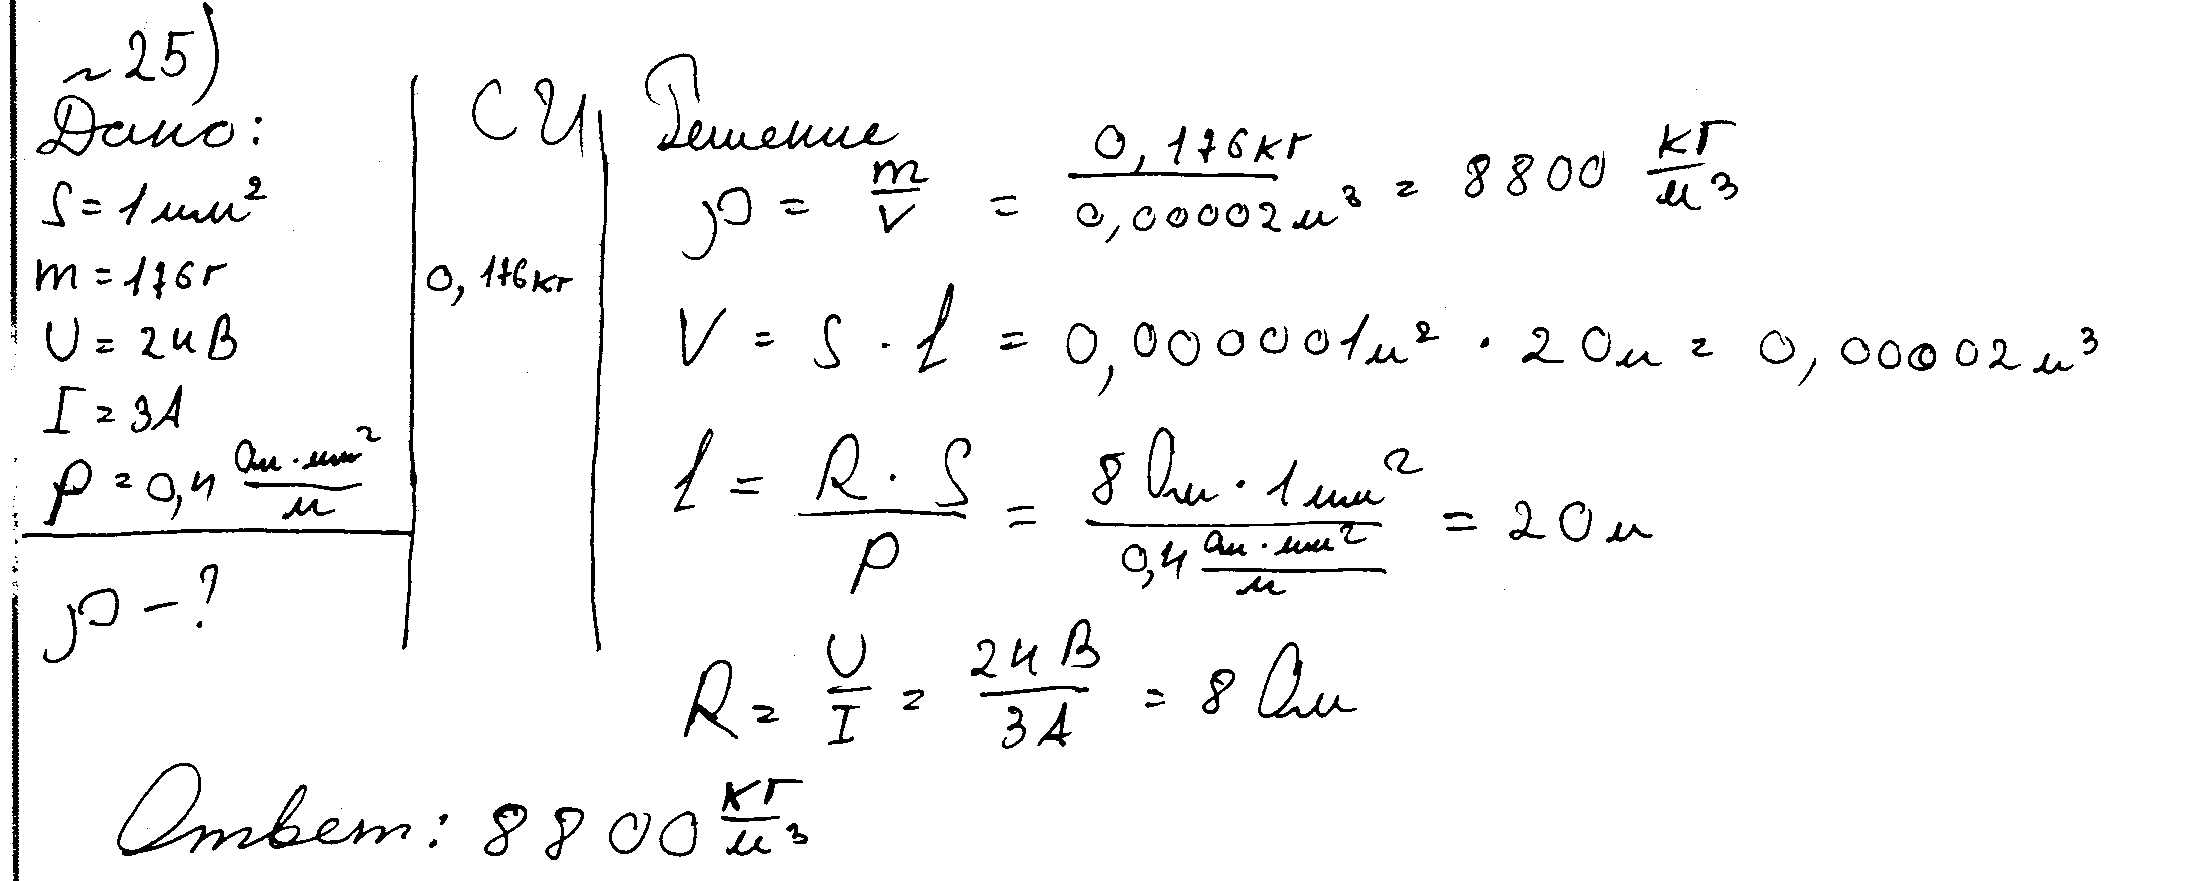 ~25)
Дано:
S = 1 мм²
m = 176 г
U = 24 В
I = 3 А
p = 0,4 Ом · мм² / м
ρ – ?
СИ
0,176 кг
Решение
ρ = m / V = 0,176 кг / 0,00002 м³ = 8800 кг / м³
V = S · l = 0,000001 м² · 20 м = 0,00002 м³
l = R · S / p = 8 Ом · 1 мм² / 0,4 Ом · мм² / м = 20 м
R = U / I = 24 В / 3 А = 8 Ом
Ответ: 8800 кг / м³